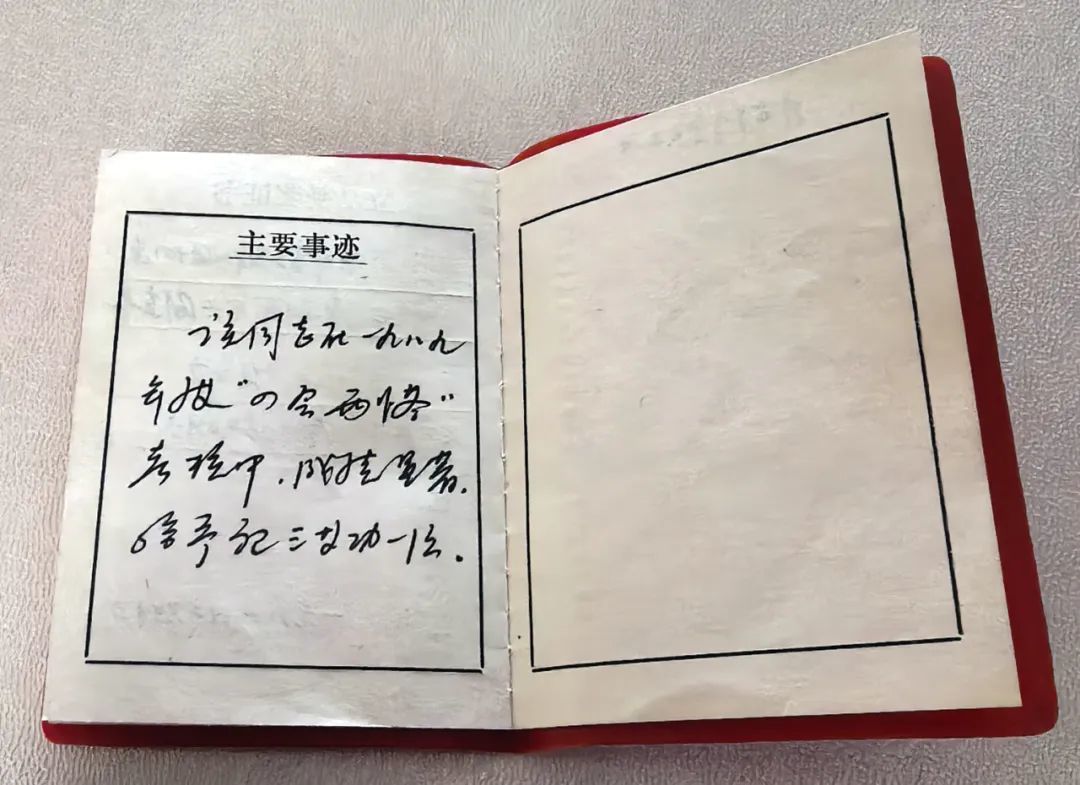 主要事迹
该同志在一九八九
年“四会两”
考核中，成绩显著，
给予记三等功一次。